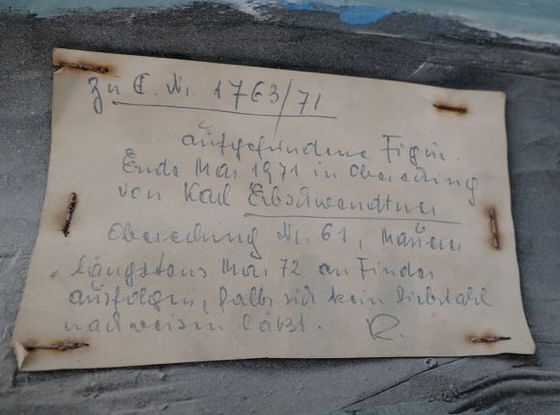 Zu E. Nr. 1763/71
aufgefundene Figur.
Ende Mai 1971 in Obereching
von Karl Erbschwendtner
Obereching Nr. 61,
längstens Mai 72 an Finder
ausfolgen, falls sich kein Diebstahl
nachweisen läßt. R.